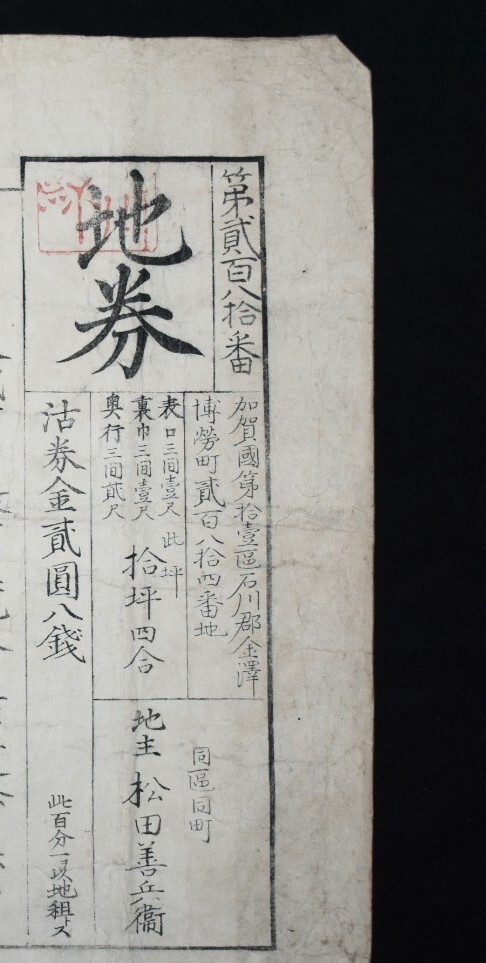 第貳百八拾番
地券
加賀國第拾壹區石川郡金澤
博勞町貳百八拾四番地
表口三間壹尺
裏巾三間壹尺
奥行三間貳尺
此坪
拾坪四合
同區同町
地主 松田善兵衞
沽券金貳圓八錢
此百分一ヲ以地租トス